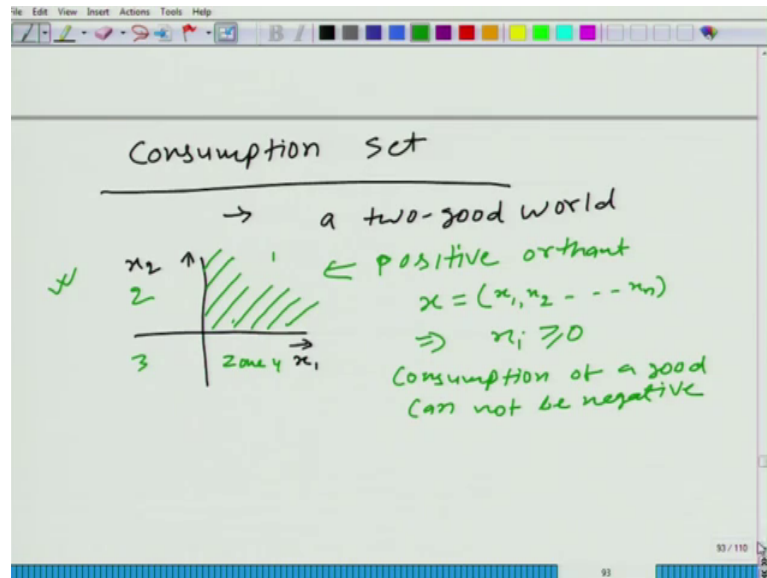 ile Edit View Insert Actions Tools Help
B I
Consumption set
→ a two-good world
x₂ ↑ 1 ← positive orthant
2 x = (x₁, x₂ - - - xₙ)
⇒ xᵢ ≥ 0
3 Zone 4 x₁
Consumption of a good
can not be negative
93 / 110
93